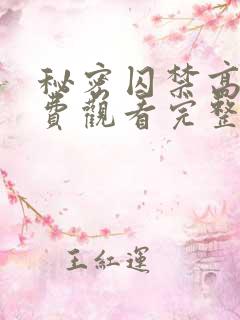 秘密囚禁高
費觀看完整
王紅運